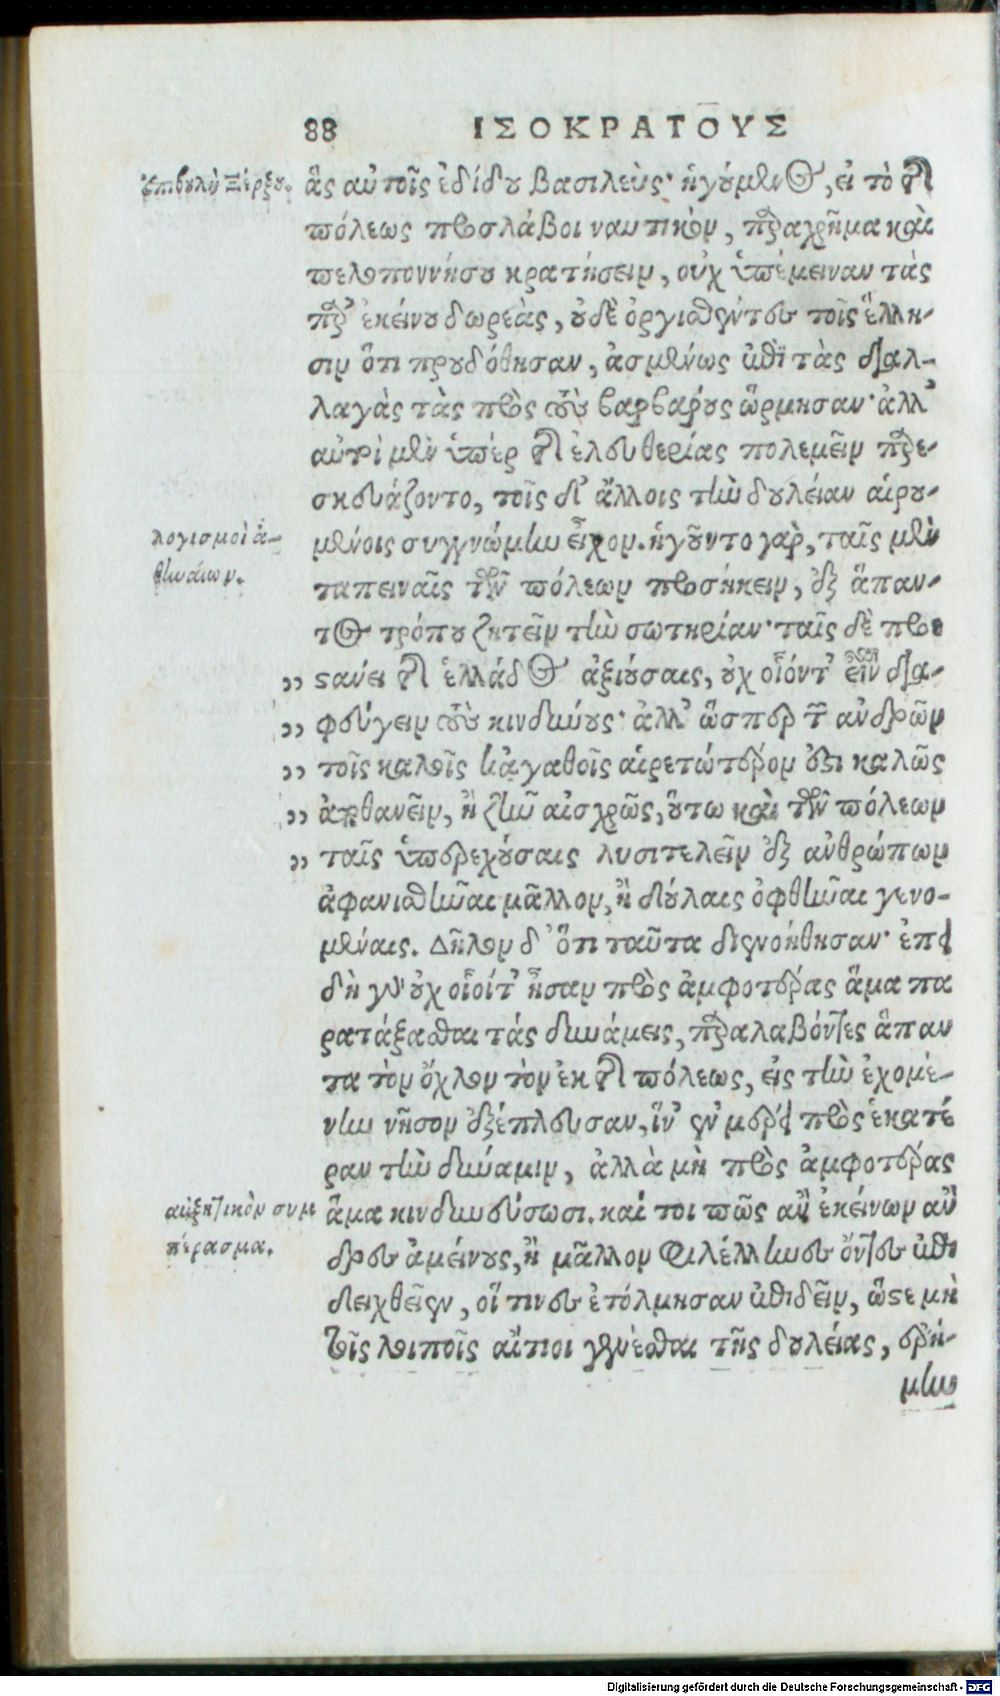 88 ΙΣΟΚΡΑΤΟΥΣ
ἐπιβουλὴ Ξέρξου.
ἃς αὐτοῖς ἐδίδου βασιλεὺς· ἡγούμενος, εἰ τὸ τῆς
πόλεως προσλάβοι ναυτικὸν, παραχρῆμα καὶ
πελοποννήσου κρατήσειν, οὐχ ὑπέμειναν τὰς
παρ’ ἐκείνου δωρεὰς, οὐδὲ ὀργισθέντες τοῖς ἕλλη-
σιν ὅτι προυδόθησαν, ἀσμένως ἐπὶ τὰς διαλ-
λαγὰς τὰς πρὸς τοὺς βαρβάρους ὥρμησαν· ἀλλ’
αὐτοὶ μὲν ὑπὲρ τῆς ἐλευθερίας πολεμεῖν παρε-
σκευάζοντο, τοῖς δ’ ἄλλοις τὴν δουλείαν αἱρου-
λογισμοὶ ἀ-
θηναίων.
μένοις συγγνώμην εἶχον. ἡγοῦντο γὰρ, ταῖς μὲν
ταπειναῖς τῶν πόλεων προσήκειν, ἐξ ἅπαν-
τος τρόπου ζητεῖν τὴν σωτηρίαν· ταῖς δὲ προε
„ στάναι τῆς ἑλλάδος ἀξιούσαις, οὐχ οἷόντ’ εἶναι δια-
„ φεύγειν τοὺς κινδύνους· ἀλλ’ ὥσπερ τῶν ἀνδρῶν
„ τοῖς καλοῖς κἀγαθοῖς αἱρετώτερόν ἐστι καλῶς
„ ἀποθανεῖν, ἢ ζῆν αἰσχρῶς, οὕτω καὶ τῶν πόλεων
„ ταῖς ὑπερεχούσαις λυσιτελεῖν ἐξ ἀνθρώπων
ἀφανισθῆναι μᾶλλον, ἢ δούλαις ὀφθῆναι γενο-
μέναις. Δῆλον δ’ ὅτι ταῦτα διενοήθησαν· ἐπει
δὴ γὰρ οὐχ οἷοίτ’ ἦσαν πρὸς ἀμφοτέρας ἅμα πα
ρατάξασθαι τάς δυνάμεις, παραλαβόντες ἅπαν
τα τὸν ὄχλον τὸν ἐκ τῆς πόλεως, εἰς τὴν ἐχομέ-
νην νῆσον ἐξέπλευσαν, ἵν’ ἐν μέρει πρὸς ἑκατέ
ραν τὴν δύναμιν, ἀλλὰ μὴ πρὸς ἀμφοτέρας
αὐξητικὸν συμ
πέρασμα.
ἅμα κινδυνεύσωσι. καί τοι πῶς ἂν ἐκείνων ἄν
δρες ἀμείνους, ἢ μᾶλλον φιλέλληνες ὄντες ἐπι
δειχθεῖεν, οἵ τινες ἐτόλμησαν ἐπιδεῖν, ὥστε μὴ
τοῖς λοιποῖς αἴτιοι γενέσθαι τῆς δουλείας, ἐρή-
μην
Digitalisierung gefördert durch die Deutsche Forschungsgemeinschaft - DFG